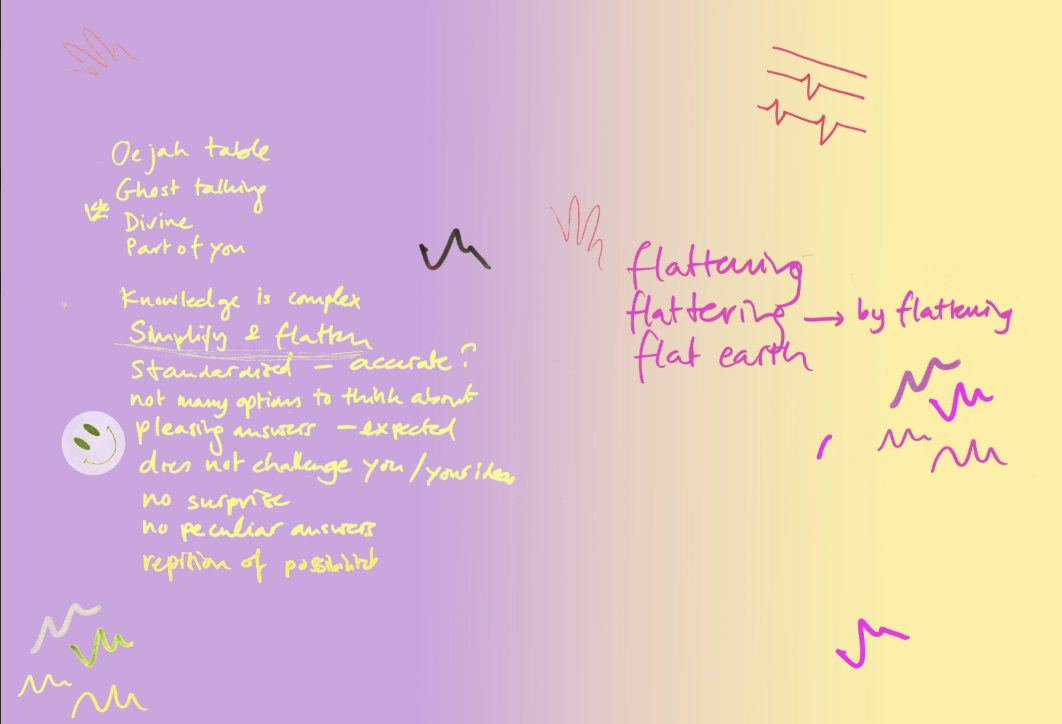 Oejah table
Ghost talking
Divine
Part of you
Knowledge is complex
Simplify & flatten
Standardized – accurate?
not many options to think about
pleasing answers – expected
does not challenge you/your ideas
no surprise
no peculiar answers
repition of
flattening
flattering → by flattening
flat earth